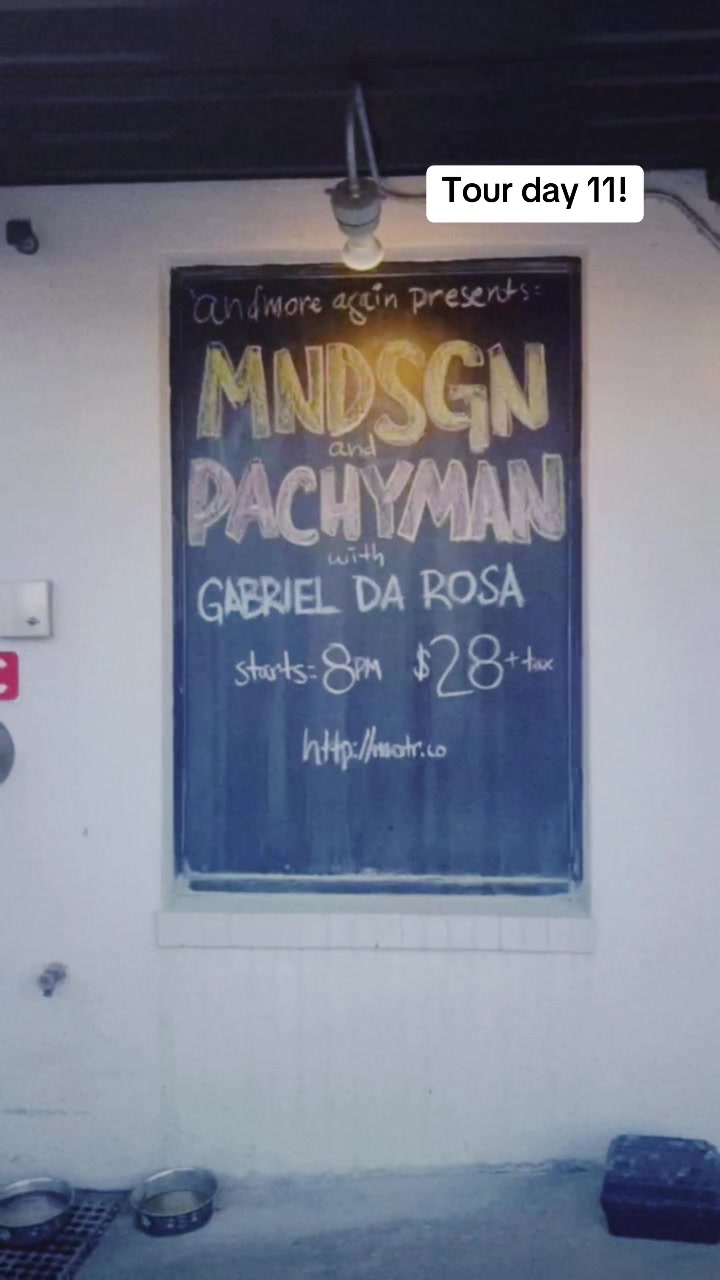 Tour day 11!
andmore again presents:
MNDSGN
and
PACHYMAN
with
GABRIEL DA ROSA
starts: 8PM $28 + tax